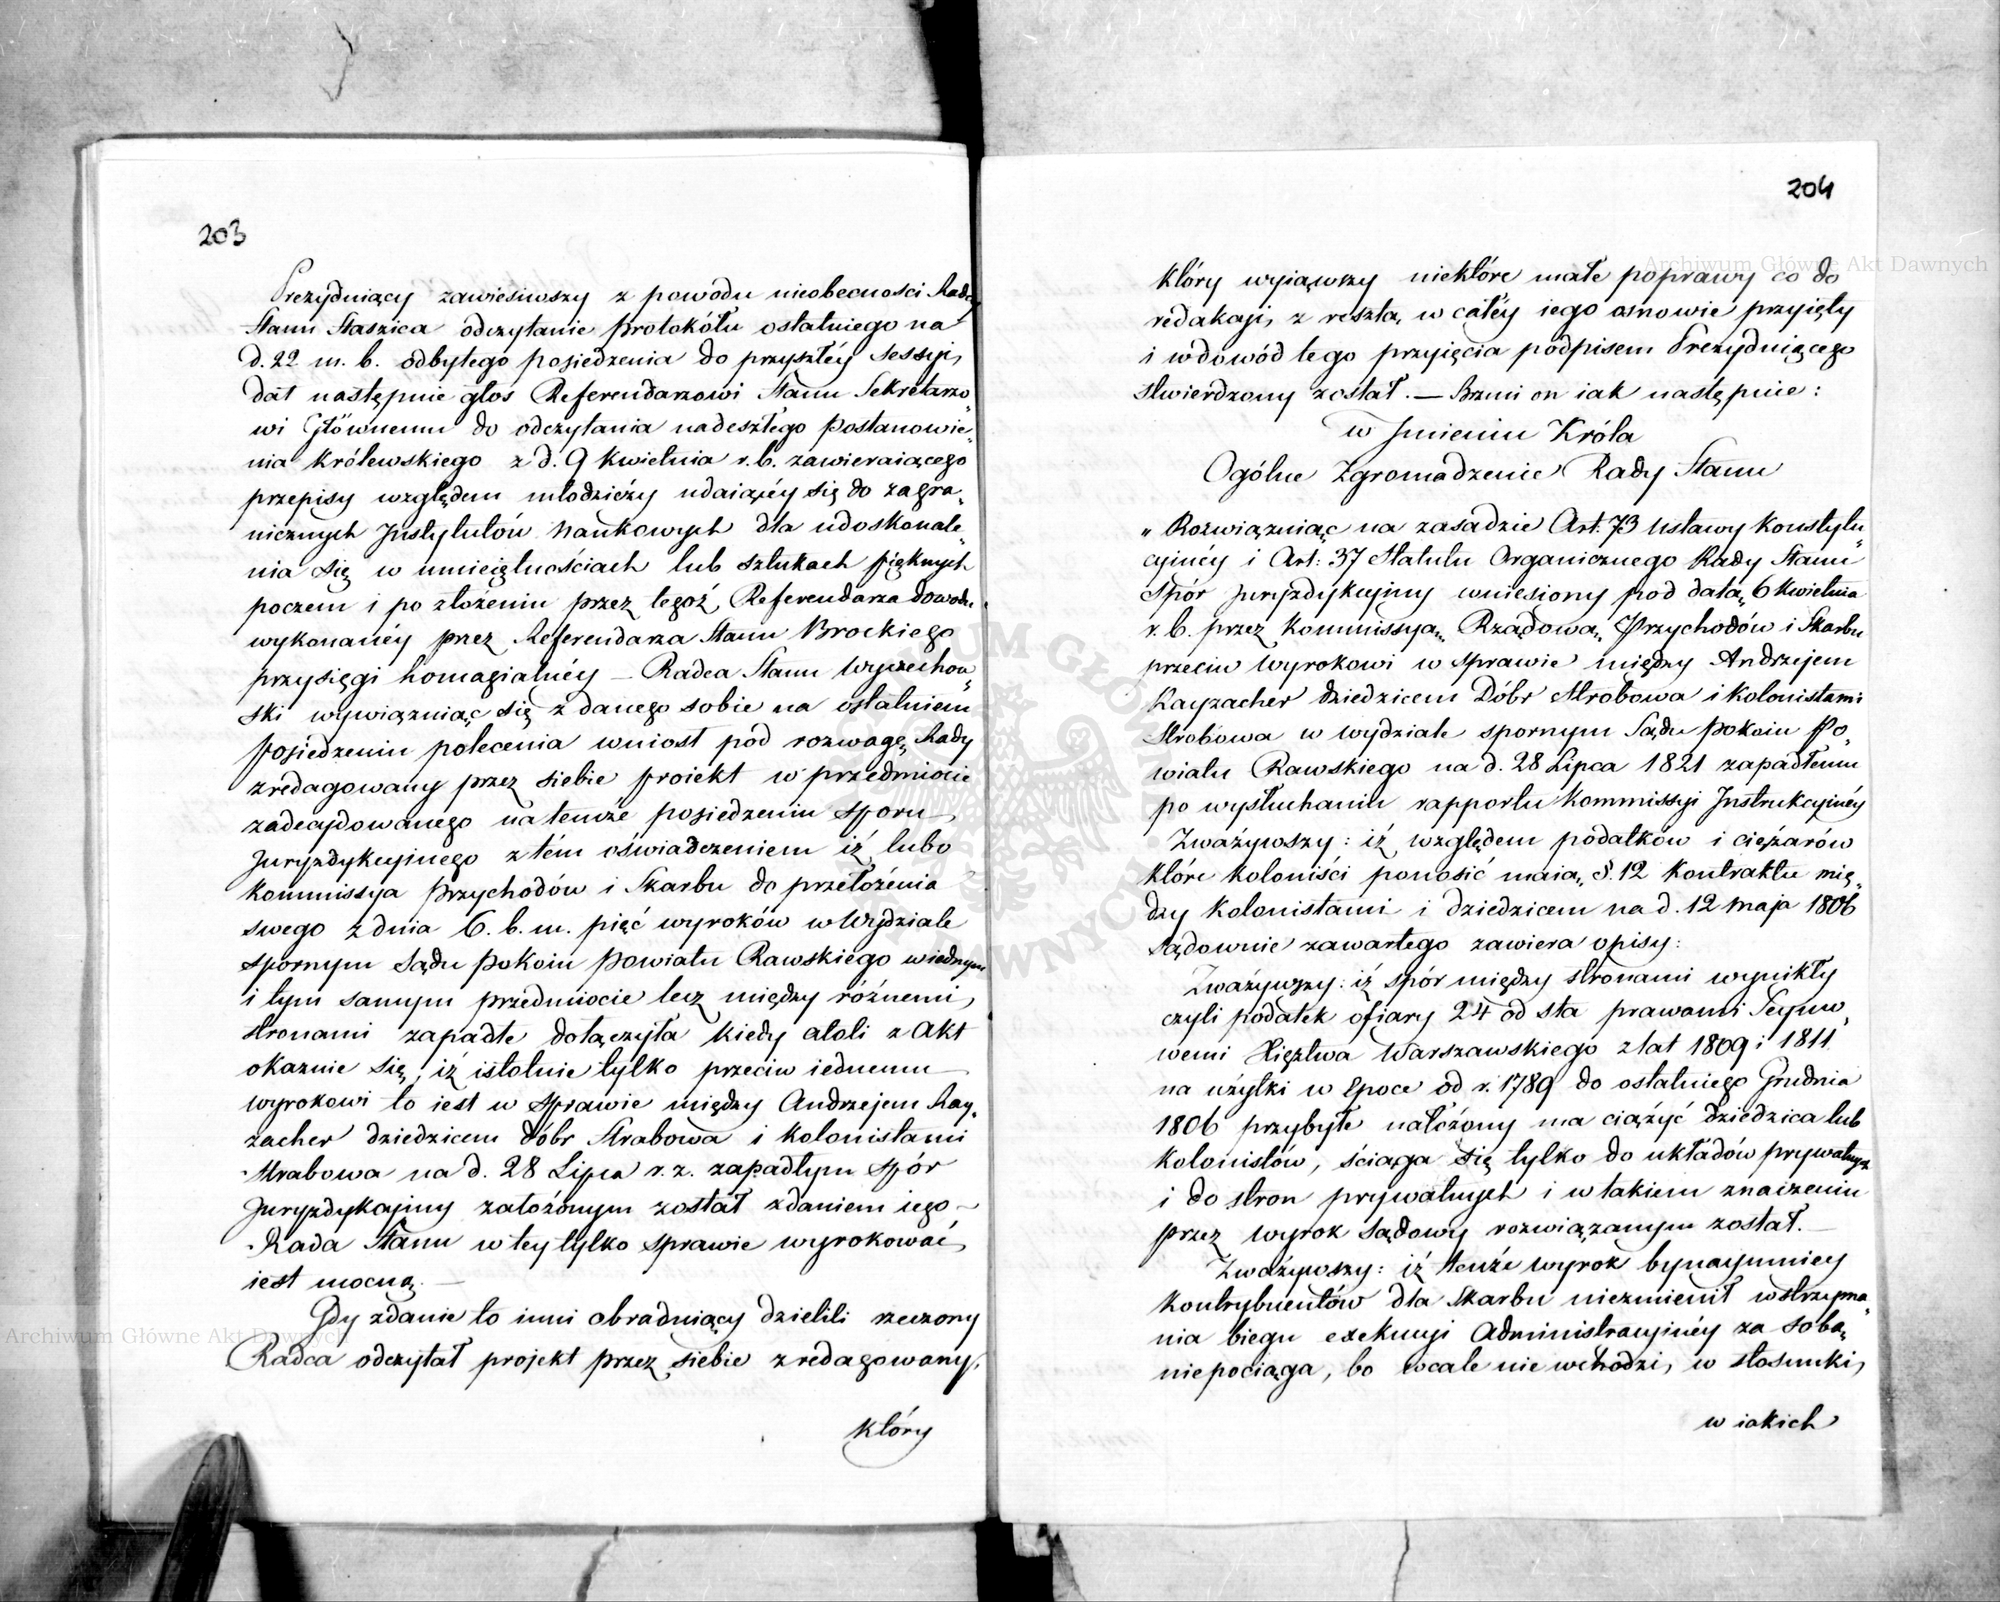 203
Prezyduiący zawiesiwszy z powodu nieobecności Radcy
Stanu Staszica odczytanie protokółu ostatniego na
d. 22 m. b. odbytego posiedzenia do przyszłéy Sessyi,
dał następnie głos Referendarzowi Stanu Sekretarzo„
wi Głównemu do odczytania nadeszłego postanowie„
nia Królewskiego z d. 9 Kwietnia r. b. zawieraiącego
przepisy względem młodzieży udaiącéy się do zagra„
nicznych Instytutów Naukowych dla udoskonale„
nia się w umieiętnościach lub sztukach pięknych
poczem i po złożeniu przez tegoż Referendarza dowodu
wykonanéy przez Referendarza Stanu Brockiego
przysięgi homagialnéy — Radca Stanu Wyczechow„
ski wywiązuiąc się z danego sobie na ostatniem
posiedzeniu polecenia wniosł pod rozwagę Rady
zredagowany przez siebie proiekt w przedmiocie
zadecydowanego na temże posiedzeniu sporu
Juryzdykcyinego z tém oświadczeniem iż lubo
Kommissya Przychodów i Skarbu do przełożenia
swego z dnia 6. b. m. pięć wyroków w Wydziale
spornym Sądu Pokoiu Powiatu Rawskiego w iednym
i tym samym przedmiocie lecz między różnemi
stronami zapadłe dołączyła kiedy atoli z Akt
okazuie się, iż istotnie tylko przeciw iednemu
wyrokowi to iest w sprawie między Andrzejem Kay„
zacher dziedzicem dóbr Strabowa i Kolonistami
Strabowa na d. 28 Lipca r. z. zapadłym spór
Juryzdykcyiny założonym został zdaniem iego —
Rada Stanu w tey tylko sprawie wyrokować
iest mocną. —
Gdy zdanie to inni obraduiący dzielili rzeczony
Radca odczytał projekt przez siebie zredagowany,
który
204
który wyiąwszy niektóre małe poprawy co do
redakcyi, z resztą w całéy iego osnowie przyięty
i w dowód tego przyięcia podpisem Prezyduiącego
stwierdzony został. — Brzmi on iak następuie:
w Imieniu Króla
Ogólne Zgromadzenie Rady Stanu
„ Rozwiązuiąc na zasadzie Art: 73 Ustawy Konstytu„
cyinéy i Art: 37 Statutu Organicznego Rady Stanu
Spór Juryzdykcyiny wniesiony pod datą 6 Kwietnia
r. b. przez Kommissyą Rządową Przychodów i Skarbu
przeciw Wyrokowi w sprawie między Andrzejem
Kayzacher dziedzicem Dóbr Strobowa i Kolonistami
Strobowa w wydziale spornym Sądu Pokoiu Po„
wiatu Rawskiego na d. 28 Lipca 1821 zapadłemu
po wysłuchaniu rapportu Kommissyi Instrukcyinéy
Zważywszy: iż względem podatków i ciężarów
które Koloniści ponosić maią §. 12 Kontraktu mię„
dzy Kolonistami i dziedzicem na d. 12 Maja 1806
Sądownie zawartego zawiera opisy:
Zważywszy: iż spór między stronami wynikły
czyli podatek ofiary 24 od sta prawami Seymo„
wemi Xięztwa Warszawskiego z lat 1809 i 1811
na użytki w Epoce od r. 1789 do ostatniego Grudnia
1806 przybyłe nałożony ma ciążyć dziedzica lub
kolonistów, ściąga się tylko do układów prywatnych
i do stron prywatnych i w takiem znaczeniu
przez wyrok sądowy rozwiązanym został. —
Zważywszy: iż tenże wyrok bynaymniey
Kontrybuentów dla Skarbu niezmienił wstrzyma„
nia biegu exekucyi Administracyinéy za sobą
niepociąga, bo wcale nie wchodzi, w stosunki,
w iakich
Archiwum Główne Akt Dawnych
Archiwum Główne Akt Dawnych